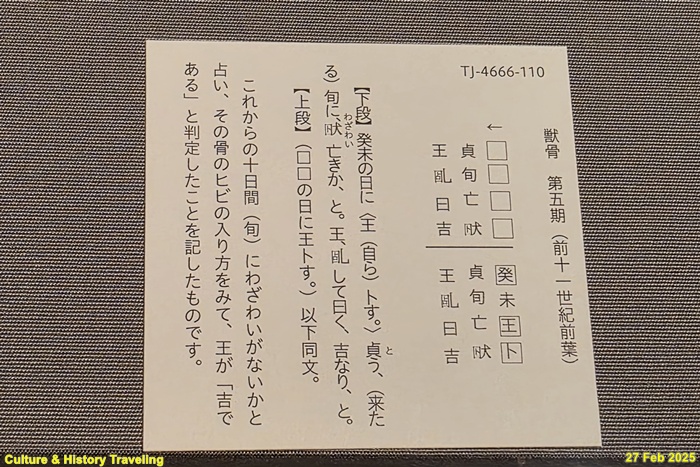 TJ-4666-110
獣骨　第五期（前十一世紀前葉）
← □□□□ 癸未王卜
貞旬亡 貞旬亡
王 曰吉 王 曰吉
【下段】癸未の日に〈王（自ら）卜す。〉貞う、（来た
と
る）旬に、 亡きか、と。王、 して曰く、吉なり、と。
わざわい
【上段】（□□の日に王卜す。）以下同文。
これからの十日間（旬）にわざわいがないかと
占い、その骨のヒビの入り方をみて、王が「吉で
ある」と判定したことを記したものです。
Culture & History Traveling
27 Feb 2025